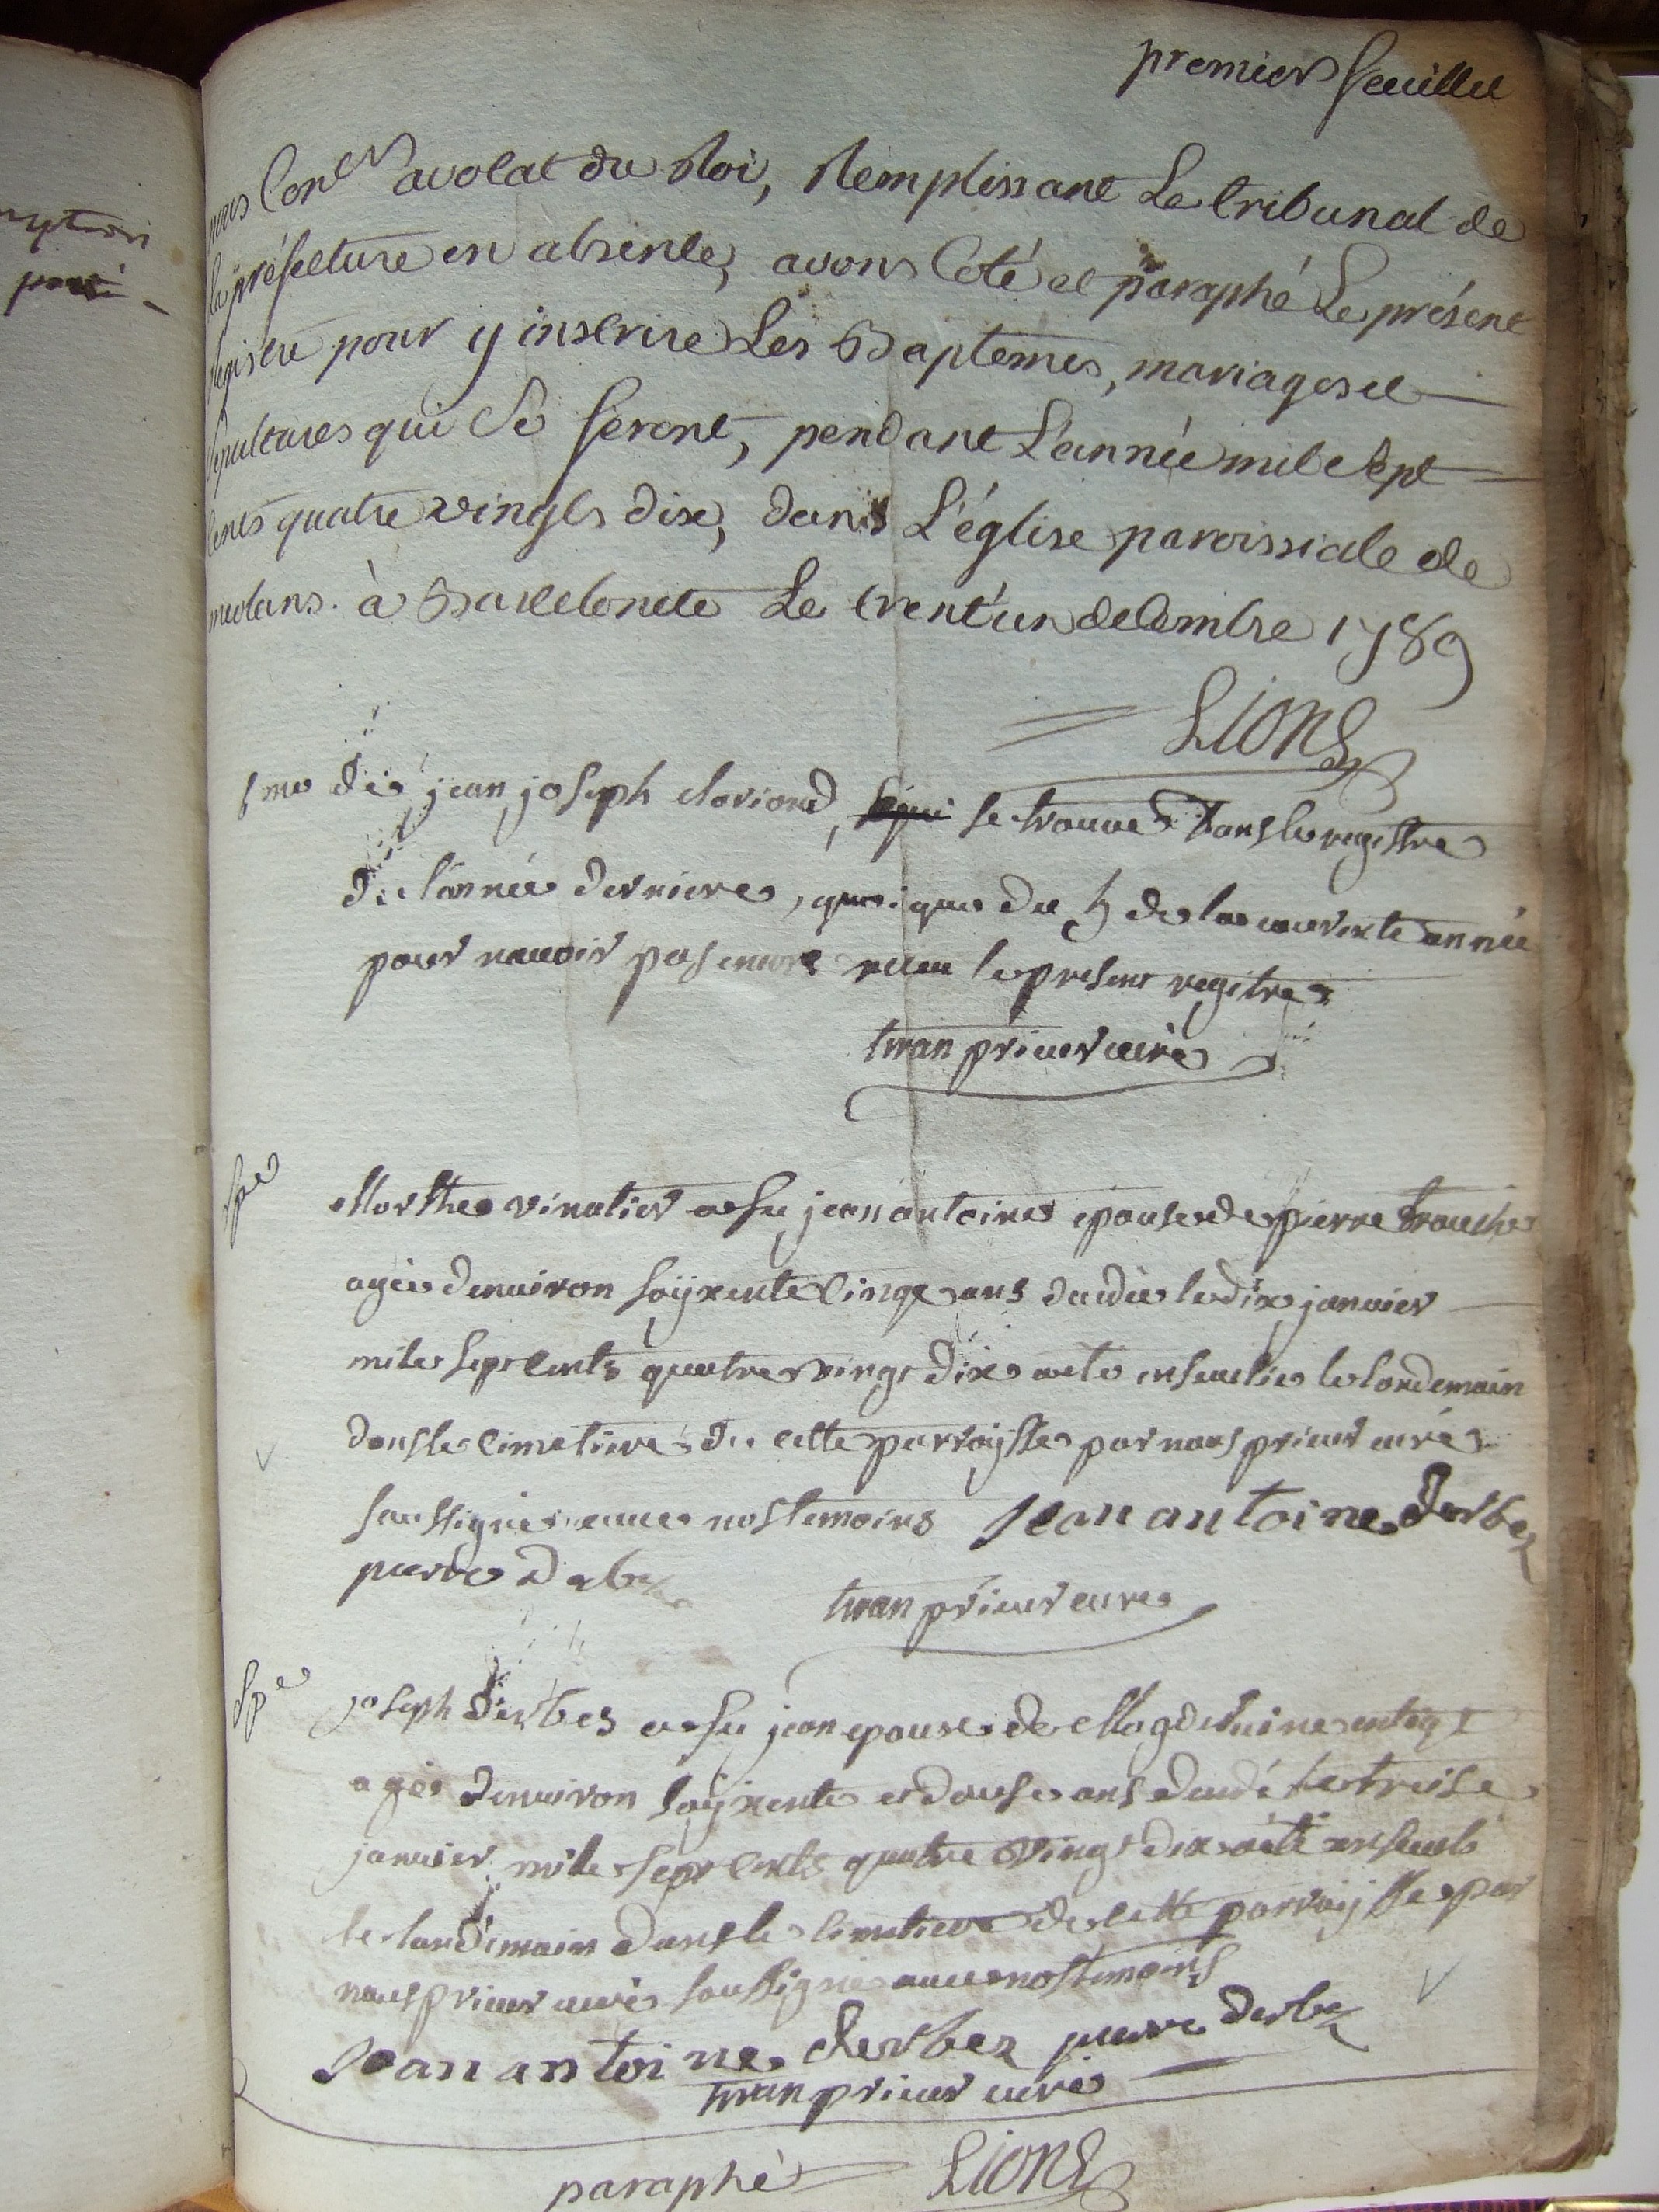 premier feuillet
nous Con.er avocat du Roi, Remplissant Le tribunal de
la préfecture en absence, avons Coté et paraphé Le présent
Registre pour y inscrire Les Baptemes, mariages et
Sepultures qui Se feront, pendant L'année mil Sept
Cents quatre vingts dix, dans L'église paroissiale de
meolans. à Barcelonete Le trent'un decembre 1789
Lions
de jean joseph clariond, se trouve dans le registre
de l'année derniere, quoique du 5 de la courente année
pour navoir pas encore receu le present regitre
tiran prieur curé
Spe
Marthe vinatier a feu jean antoine epouse de pierre trouche
agée denviron soÿxente cinqe ans decedée le dix janvier
mile sept cents quatre vingt dix a eté ensevelie le landemain
dans le cimetiere de cette parroisse par nous prieur curé
soussigné avec nos temoins Jean antoine derbez
pierre derbez
tiran prieur curé
Spe
joseph derbes a feu jean epouse de Magdeleine
agé denviron soÿxente et douse ans decedé le treise
janvier mile sept cents quatre vingt dix a été enseveli
le landemain dans le cimetiere de cette parroisse par
nous prieur curé soussigné avec nos temoins
Jean antoine derbez pierre derbez
tiran prieur curé
paraphé Lions